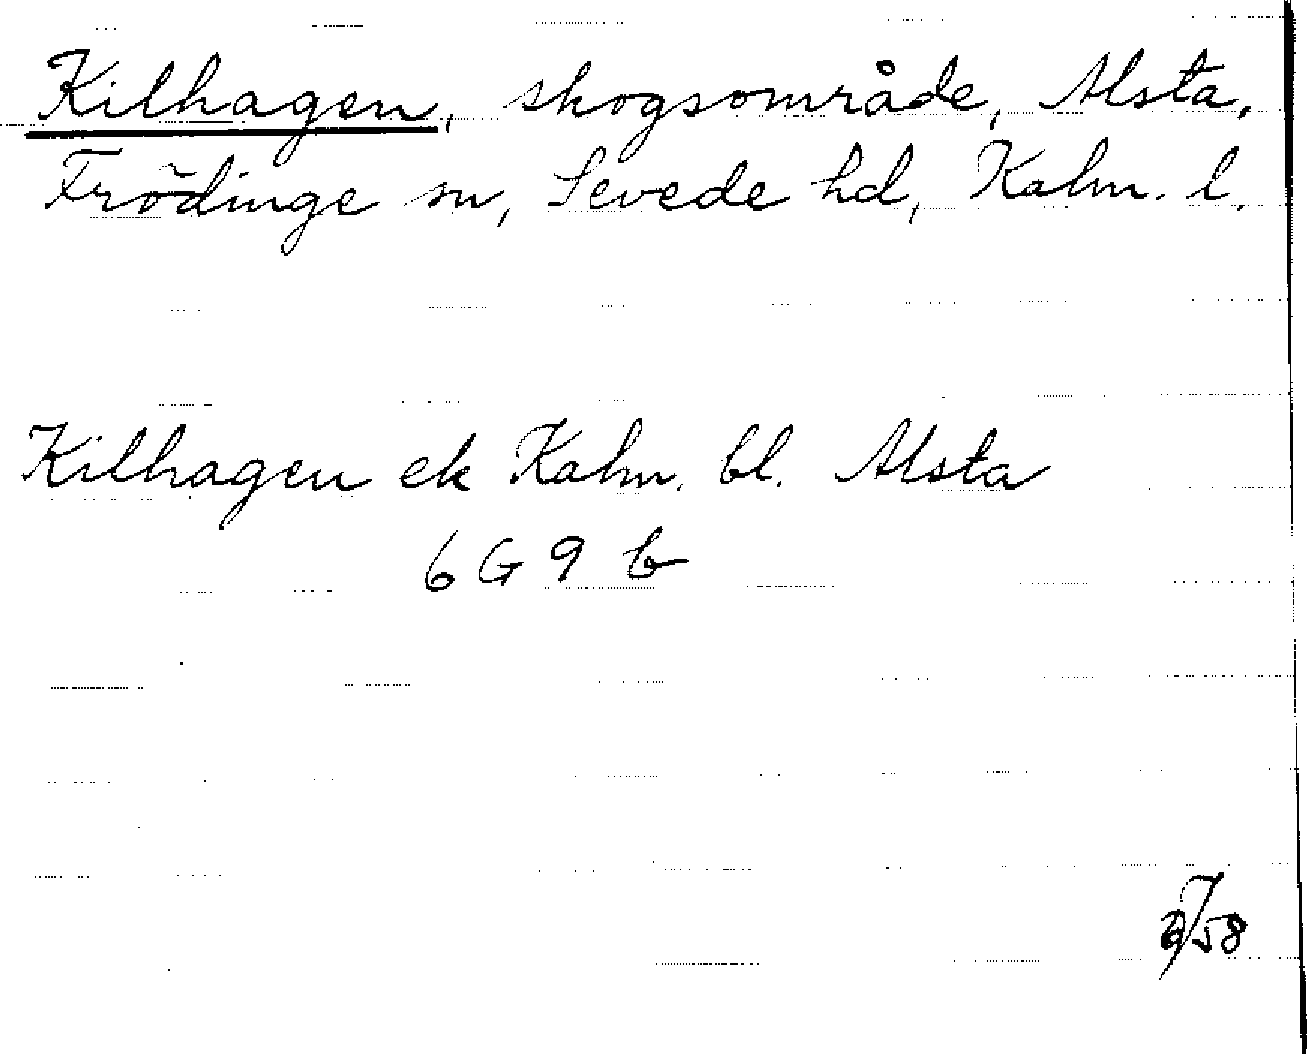 Kilhagen, skogsområde, Alsta,
Frödinge sn, Sevede hd, Kalm. l.
Kilhagen ek Kalm. bl. Alsta
6 G 9 b